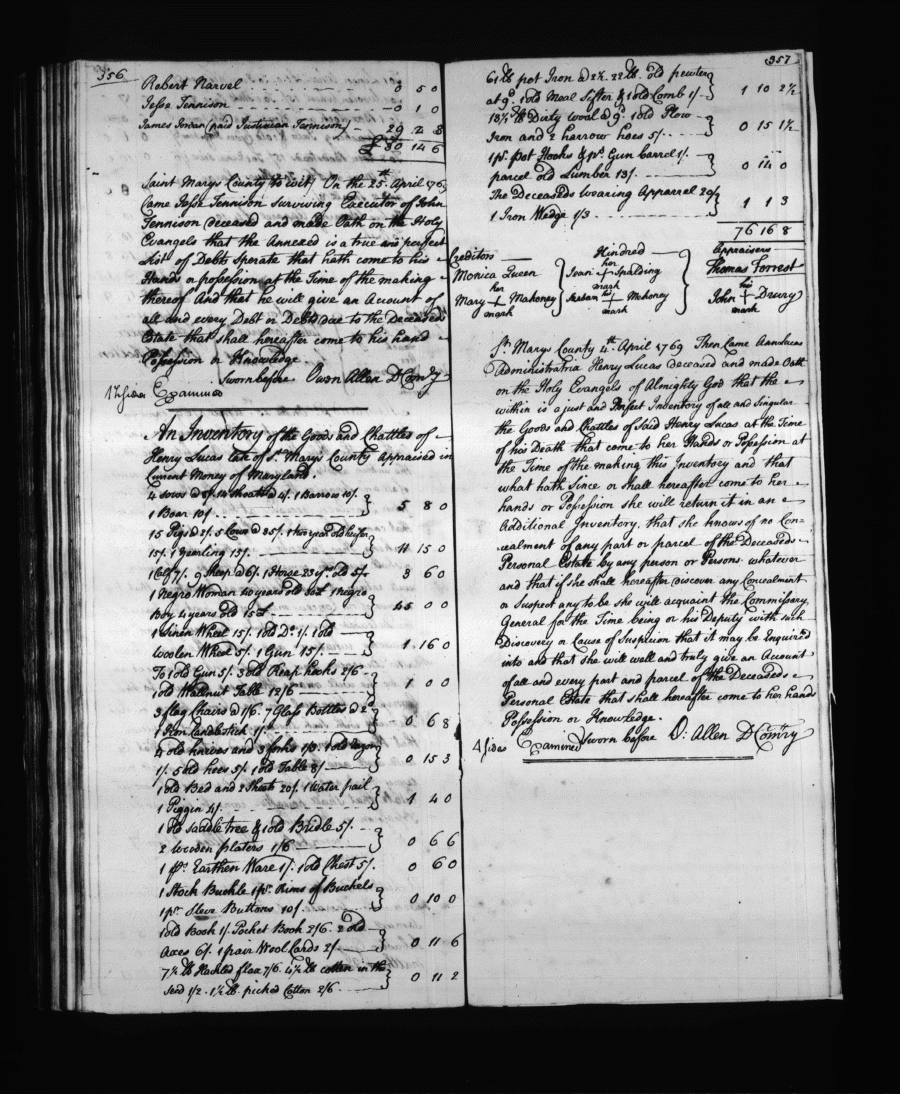 356
Robert Narvel 0 5 0
Jesse Tennison 0 1 0
James Jordan (paid Justinian Tennison) 29 2 8
£80 14 6
Saint Marys County to wit/ On the 25th April 1769
Came Jesse Tennison surviving Executor of John
Tennison deceased and made Oath on the Holy
Evangels that the Annexed is a true and perfect
List of Debts Sperate that hath come to his
Hands or possession at the Time of the making
thereof And that he will give an Account of
all and every Debt or Debts due to the Deceaseds
Estate that shall hereafter come to his hand
Possession or Knowledge.
Sworn before Owen Allen D Comry
Sides Examined
An Inventory of the Goods and Chattles of
Henry Lucas late of St. Marys County Appraised in
Current Money of Maryland.
4 sows @ 5/. 14 Shoats @ 4/. 1 Barrow 10/.
1 Boar 10/. 5 8 0
15 Pigs @ 2/. 5 Cows @ 35/. 1 two year old heifer
15/. 1 yearling 15/. 11 15 0
1 Calf 7/. 9 Sheep @ 6/. 1 Horse 23 yrs old 5/. 3 6 0
1 Negro Woman 40 years old 1 Negro
Boy 4 years old 45 0 0
1 Linen Wheel 15/. 1 old Do. 1/. 1 old
Woolen Wheel 5/. 1 Gun 15/. 1 16 0
To 1 old Gun 5/. 3 old Reap hooks 2/6
1 old Wallnut Table 12/6 1 0 0
3 flag Chairs @ 1/6. 7 Glass Bottles @ 2d
1 Iron Candlestick 1/. 0 6 8
4 old knives and 3 forks 1/3. 1 old
1/. 5 old hoes 5/. 1 old Table 8/. 0 15 3
1 old Bed and 2 Sheets 20/. 1 Water pail
1 Piggin 4/. 1 4 0
1 old saddle tree & 1 old Bridle 5/.
2 wooden platers 1/6 0 6 6
1 ps. Earthen Ware 1/. 1 old Chest 5/. 0 6 0
1 Stock Buckle 1 pr. Rims of Buckels
1 pr. Sleve Buttons 10/. 0 10 0
1 old Book 1/. Pocket Book 2/6. 2 old
Axes 6/. 1 pair Wool Cards 2/. 0 11 6
7½ lb Hackled flax 7/6. 4¾ lb cotten in the
Seed 1/2. 1¼ lb. picked Cotton 2/6. 0 11 2
357
61 lb pot Iron @ 2½. 22 lb. old pewter
at 9d. 1 old Meal Sifter & 1 old Comb 1/. 1 10 2½
18½ lb Dirty wool @ 9d. 1 old Plow
Iron and 2 harrow hoes 5/. 0 15 1½
1 pr. Pot Hooks & ps. Gun barrel 1/.
parcel old Lumber 13/. 0 14 0
The Deceaseds wearing Apparrel 20/.
1 Iron Wedge 1/3 1 1 3
76 16 8
Creditors Kindred Appraisers
Monica Queen Jean her + mark Spalding Thomas Forrest
Mary her + mark Mahoney + mark Mahoney John his + mark Drury
St. Marys County 4th April 1769 Then Came Ann Lucas
Administratrix Henry Lucas deceased and made Oath
on the Holy Evangels of Almighty God that the
within is a just and Perfect Inventory of all and Singular
the Goods and Chattles of said Henry Lucas at the Time
of his Death that come to her Hands or Possession at
the Time of the making this Inventory and that
what hath Since or shall hereafter come to her
hands or Possession she will return it in an
Additional Inventory, that she knows of no Con=
cealment of any part or parcel of the Deceaseds
Personal Estate by any person or Persons whatever
and that if she shall hereafter discover any Concealment
or Suspect any to be she will acquaint the Commissary
General for the Time being or his Deputy with such
Discovery or Cause of Suspicion that it may be Enquired
into and that she will well and truly give an Account
of all and every part and parcel of the Deceaseds
Personal Estate that shall hereafter come to her hands
Possession or Knowledge.
4 Sides Examined Sworn before O: Allen D Comry